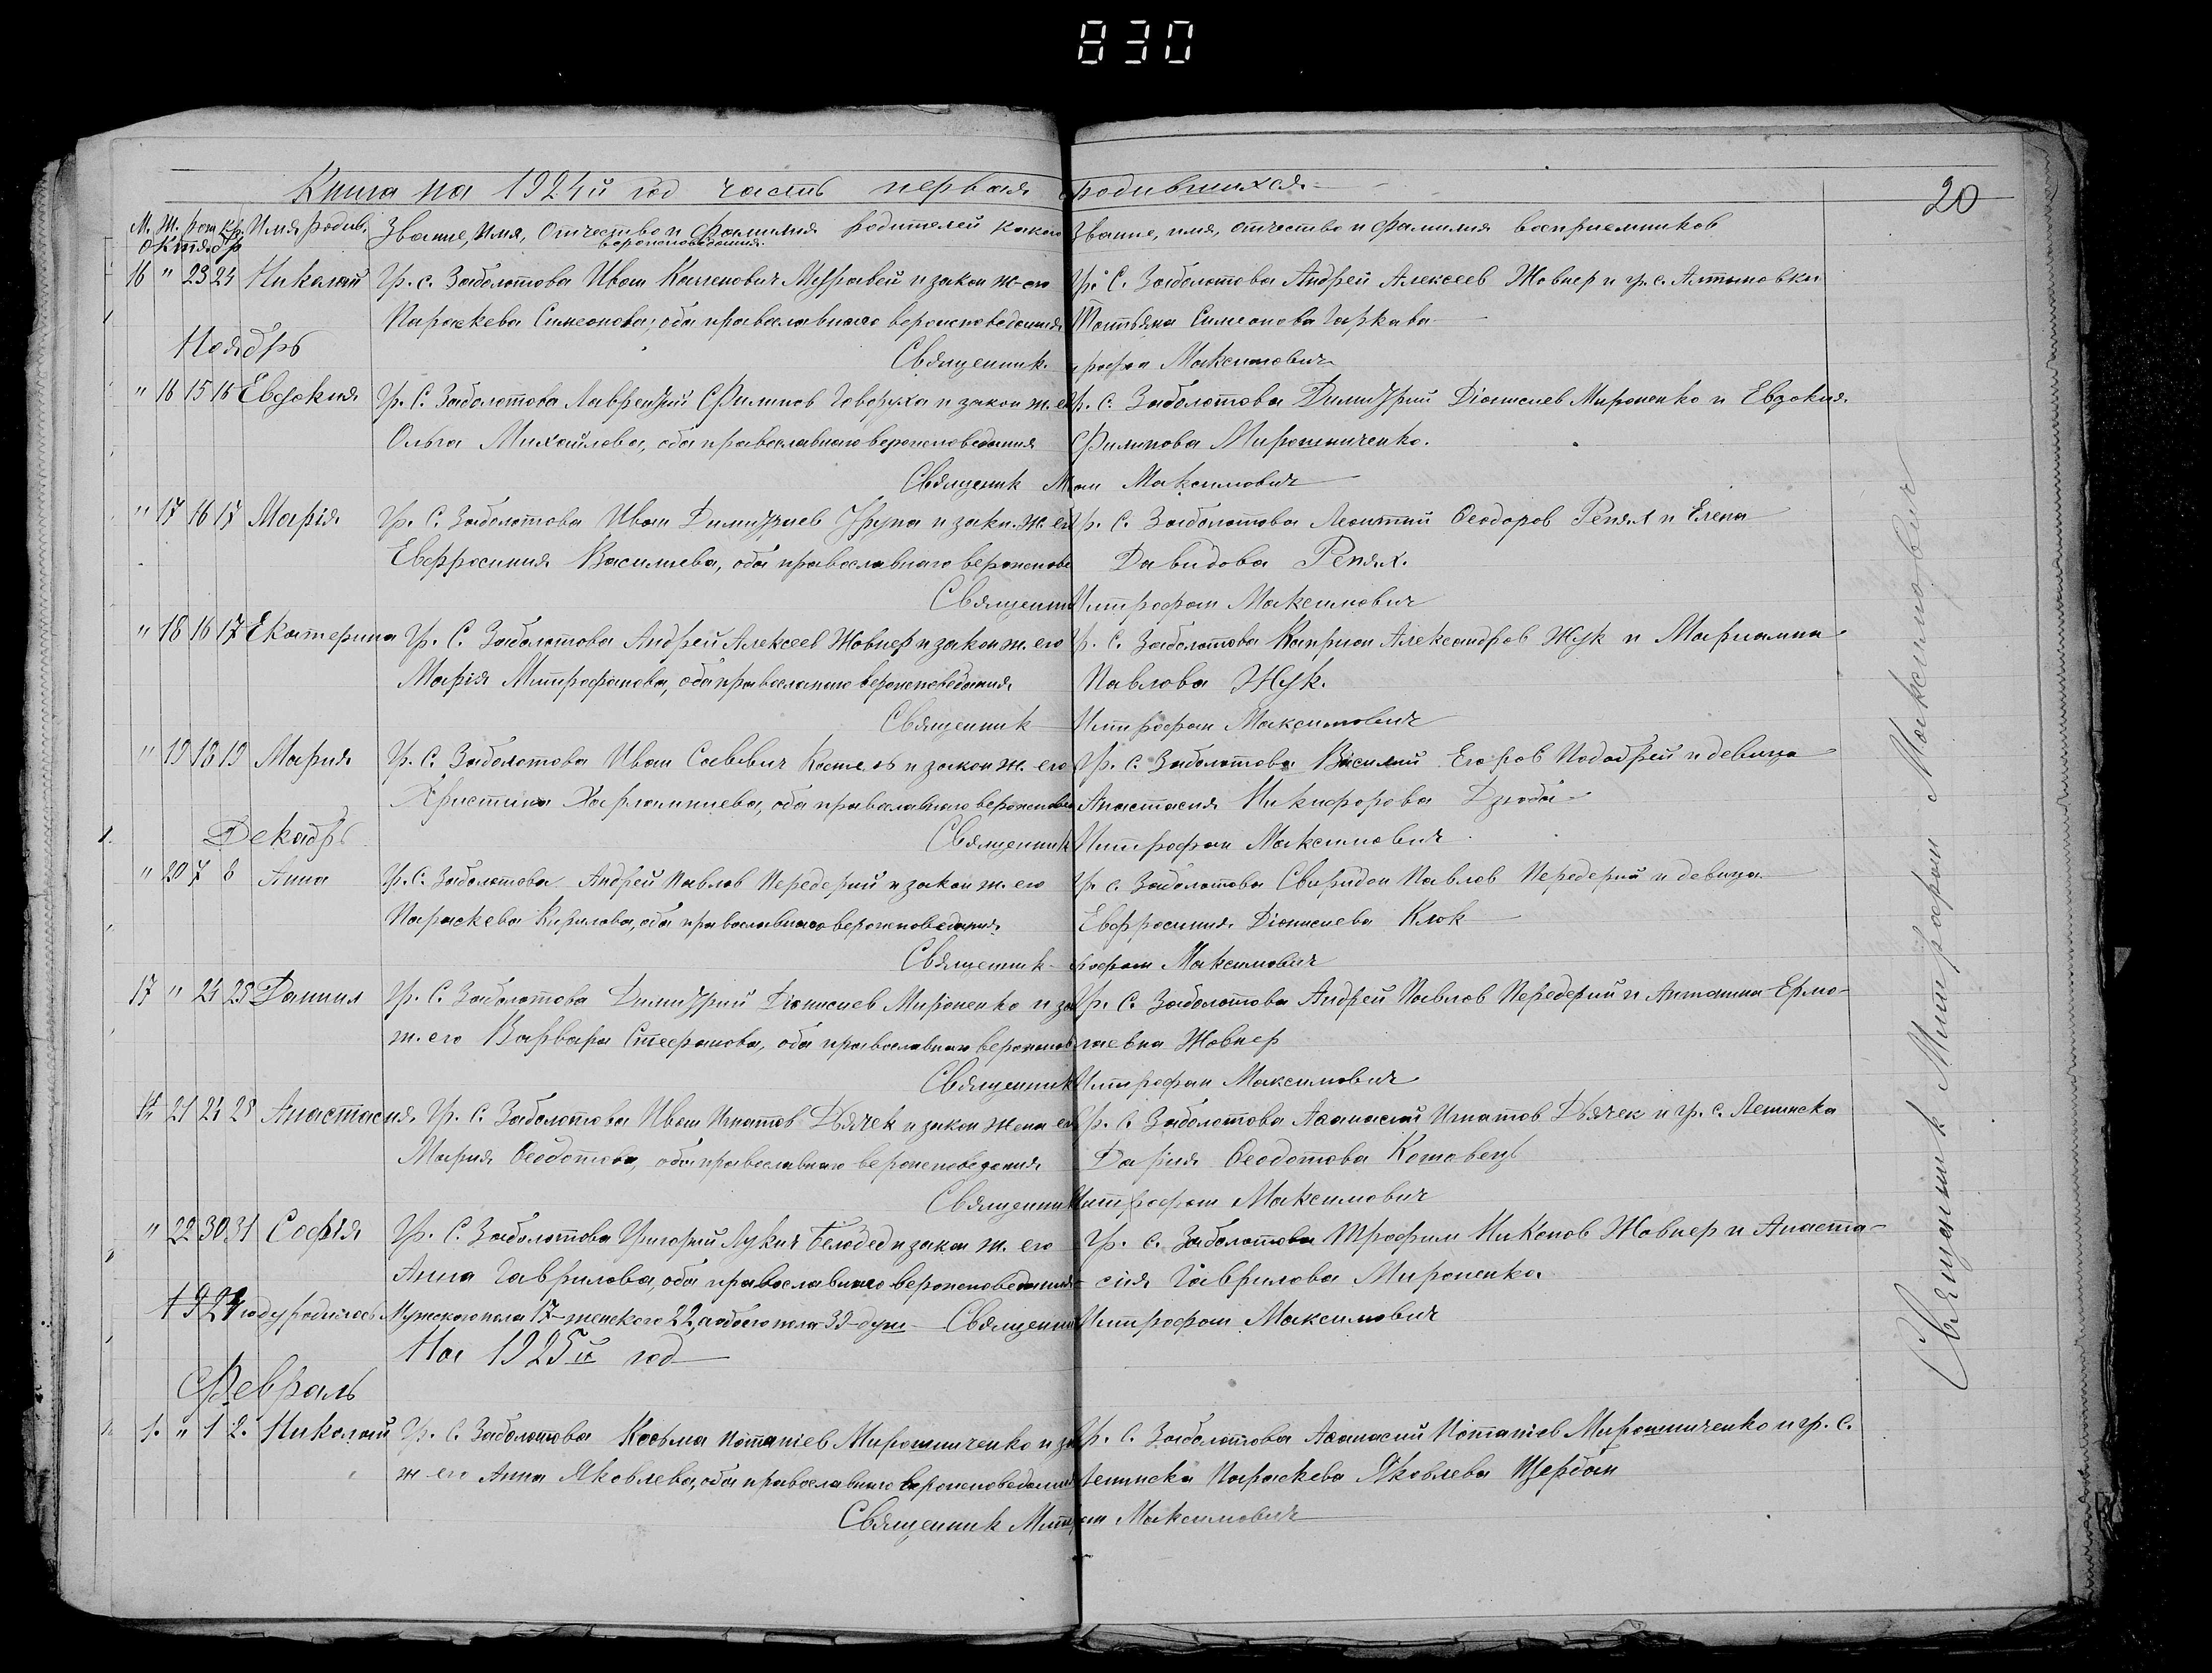 830
Книга на 1924й год часть первая родившихся
20
М. Ж. рож. кр. Имя родив. Звание, Имя, Отчество и фамилия родителей какого вероисповедания. Звание, имя, отчество и фамилия восприемников
Октябр
16 " 23 24 Николай Гр. с. Заболотова Иван Муравей и закон ж-его Гр. С. Заболотова Андрей Алексеев Жовнер и гр. с. Алтыновки
Параскева Симеонова, оба православного вероисповедания Татьяна Симеонова
Ноябрь
Священник Максимович
" 16 15 16 Евдокия Гр. С. Заболотова Лаврентий Филипов Говоруха и закон ж. его Гр. С. Заболотова Димитрий Діонисиев Мироненко и Евдокия
Ольга Михайлова, оба православного вероисповедания Филипова Мирошниченко.
Священник Максимович
" 17 16 17 Марія Гр. С. Заболотова Иван Димитриев и закон. ж. его Гр. С. Заболотова Леонтий Феодоров Репях и Елена
Евфросиния Василиева, оба православного вероиспове Давидова Репях.
Священник Митрофан Максимович
" 18 16 17 Екатерина Гр. С. Заболотова Андрей Алексеев Жовнер и закон ж. его Гр. С. Заболотова Киприан Александров Жук и Мариамна
Марія Митрофанова, оба православного вероисповедания Павлова Жук.
Священник Митрофан Максимович
" 19 18 19 Мария Гр. С. Заболотова Иван Саввич и закон ж. его Гр. С. Заболотова Василий Егоров и девица
Христина Харлампиева, оба православного вероисповед Анастасия Никифорова Дзюба
Декабрь
Священник Митрофан Максимович
" 20 7 8 Анна Гр. С. Заболотова Андрей Павлов Передерий и закон ж. его Гр. с. Заболотова Свиридон Павлов Передерий и девица
Параскева Кирилова, оба православного вероисповедания Евфросиния Діонисиева Клок
Священник Максимович
17 " 24 25 Даниил Гр. С. Заболотова Димитрий Діонисиев Мироненко и зак Гр. С. Заболотова Андрей Павлов Передерий и Антонина Ермо-
ж. его Варвара Стефанова, оба православного вероиспов лаевна Жовнер
Священник Митрофан Максимович
21 24 25 Анастасия Гр. С. Заболотова Иван Игнатов Дьячек и закон жена его Гр. С. Заболотова Афанасий Игнатов Дьячек и гр. с. Ленинска
Мария Феодотова, оба православного вероисповедания Дария Феодотова Котовец
Священник Митрофан Максимович
" 22 30 31 Софія Гр. С. Заболотова Григорий Лукич Белодед и закон ж. его Гр. с. Заболотова Трофим Никонов Жовнер и Анаста-
Анна Гаврилова, оба православного вероисповедания сія Гаврилова Мироненка
1924 году родилось Мужского пола 17-женского 22, а обоего пола 39-душ Священник Митрофан Максимович
На 1925й год
Февраль
1. " 1 2. Николай Гр. С. Заболотова Косьма Потапіев Мирошниченко и зак Гр. С. Заболотова Афанасий Потапіев Мирошниченко и гр. С.
ж его Анна Яковлева, оба православного вероисповедания Ленинска Параскева Яковлева Щербак
Священник Максимович
Священник Митрофан Максимович